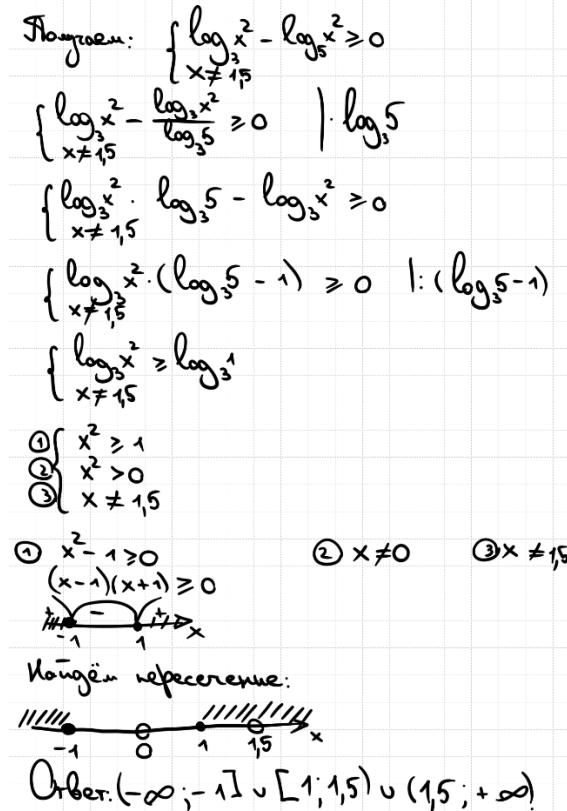 Получаем: { log₃x² - log₅x² ≥ 0
x ≠ 1,5
{ log₃x² - log₃x²/log₃5 ≥ 0 | · log₃5
x ≠ 1,5
{ log₃x² · log₃5 - log₃x² ≥ 0
x ≠ 1,5
{ log₃x² · (log₃5 - 1) ≥ 0 |: (log₃5 - 1)
x ≠ 1,5
{ log₃x² ≥ log₃1
x ≠ 1,5
① { x² ≥ 1
② x² > 0
③ x ≠ 1,5
① x² - 1 ≥ 0 ② x ≠ 0 ③ x ≠ 1,5
(x-1)(x+1) ≥ 0
+ - +
-1 1 x
Найдём пересечение:
-1 0 1 1,5 x
Ответ: (-∞; -1] ∪ [1; 1,5) ∪ (1,5; +∞)